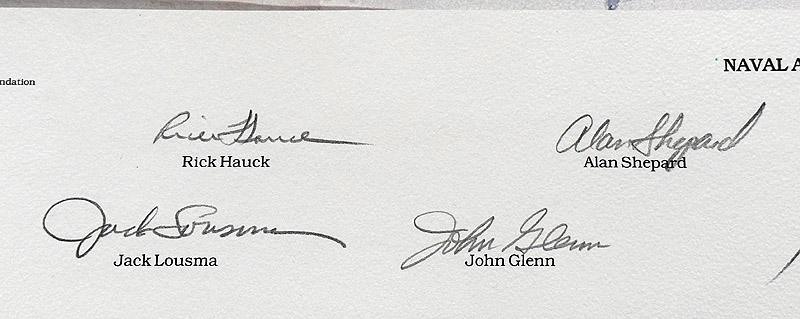 NAVAL A
ndation
Rick Hauck
Alan Shepard
Rick Hauck
Alan Shepard
Jack Lousma
John Glenn
Jack Lousma
John Glenn